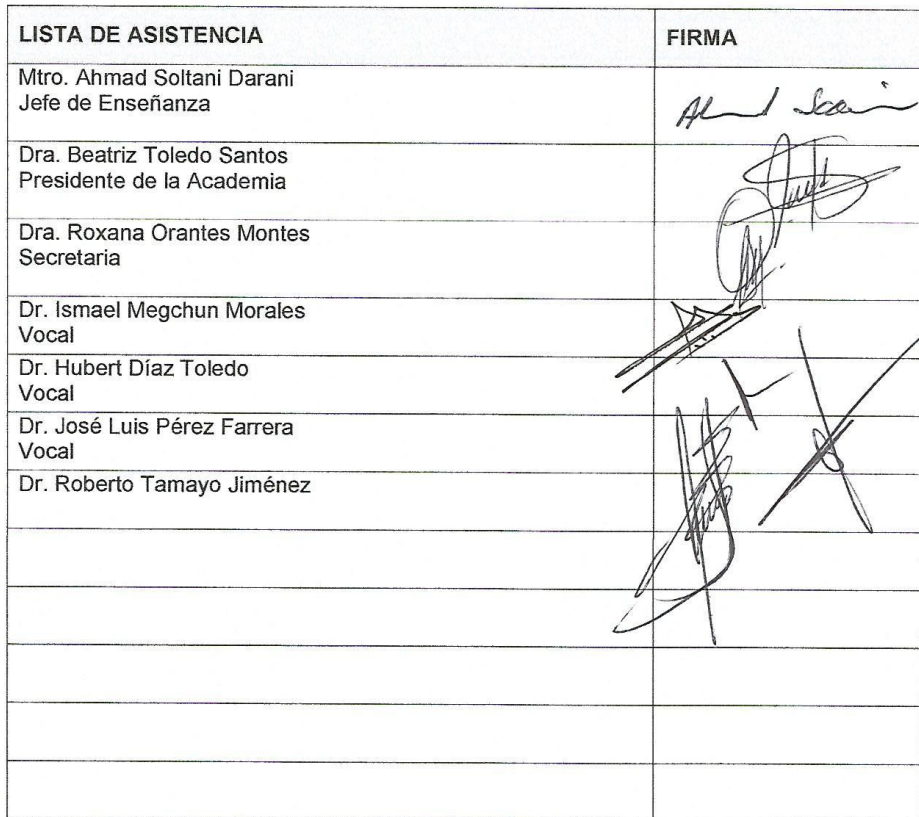 LISTA DE ASISTENCIA
FIRMA
Mtro. Ahmad Soltani Darani
Jefe de Enseñanza
Dra. Beatriz Toledo Santos
Presidente de la Academia
Dra. Roxana Orantes Montes
Secretaria
Dr. Ismael Megchun Morales
Vocal
Dr. Hubert Díaz Toledo
Vocal
Dr. José Luis Pérez Farrera
Vocal
Dr. Roberto Tamayo Jiménez